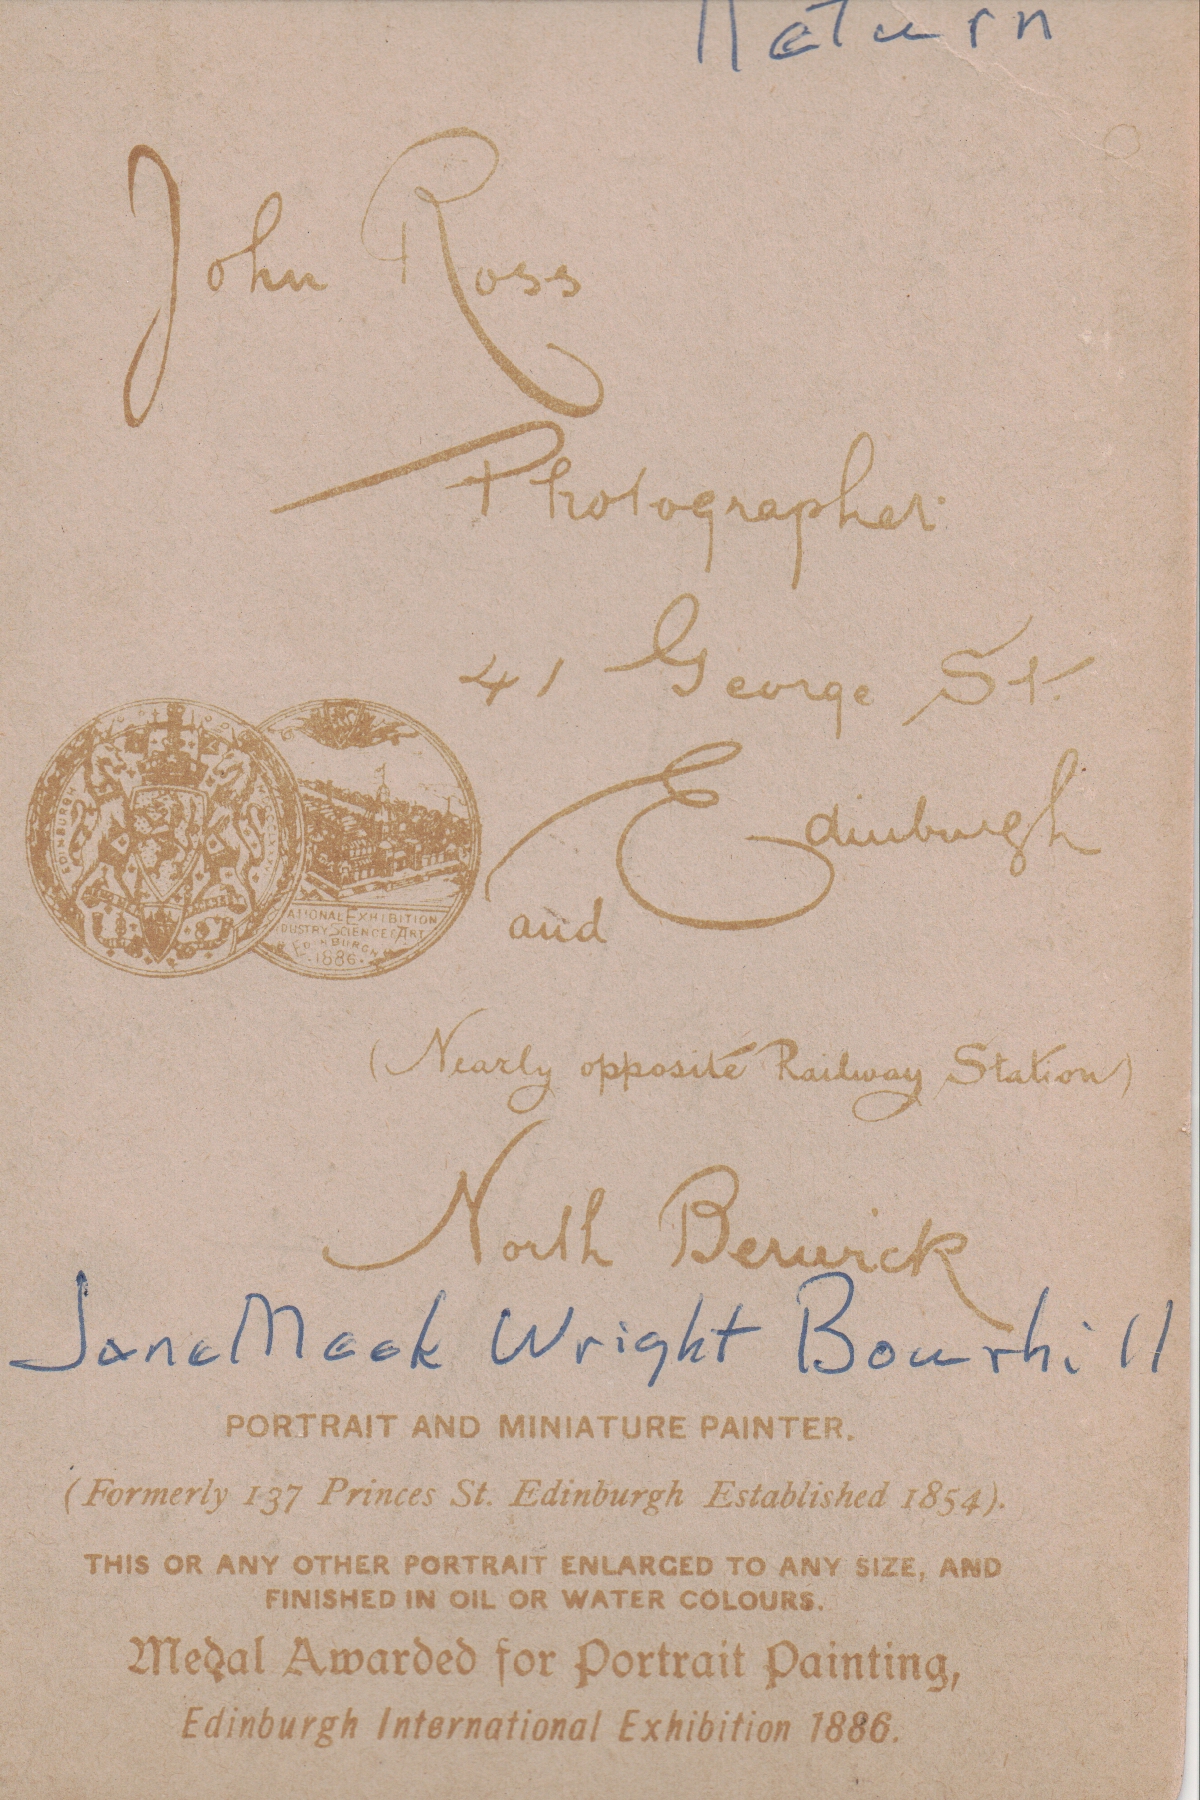 Return
John Ross
Photographer
41 George St.
Edinburgh
and
EDINBURGH
NATIONAL EXHIBITION
DUSTRY SCIENCE & ART
EDINBURGH
1886.
(Nearly opposite Railway Station)
North Berwick
Jane Meek Wright Bourhill
PORTRAIT AND MINIATURE PAINTER.
(Formerly 137 Princes St. Edinburgh Established 1854).
THIS OR ANY OTHER PORTRAIT ENLARGED TO ANY SIZE, AND
FINISHED IN OIL OR WATER COLOURS.
Medal Awarded for Portrait Painting,
Edinburgh International Exhibition 1886.